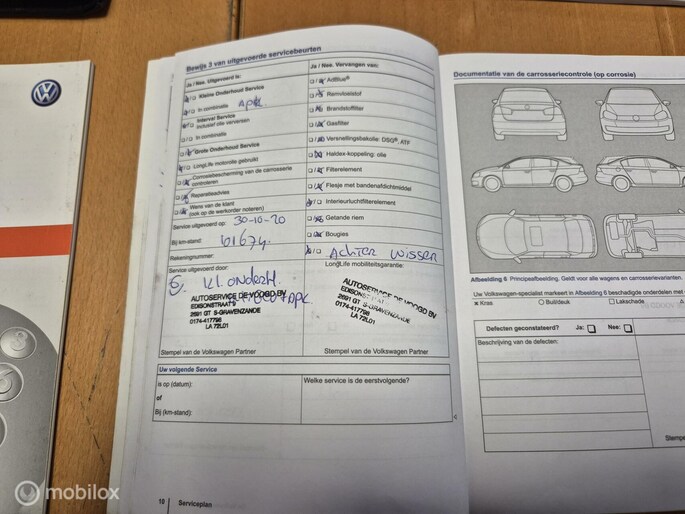 Bewijs 3 van uitgevoerde servicebeurten
Ja / Nee. Uitgevoerd is:
Kleine Onderhoud Service
In combinatie APK
Interval Service
Inclusief olie verversen
In combinatie
Grote Onderhoud Service
LongLife motorolie gebruikt
Corrosiebescherming van de carrosserie
controleren
Reparatieadvies
Wens van de klant
(ook op de werkorder noteren)
Service uitgevoerd op: 30-10-20
Bij km-stand: 61674
Rekeningnummer:
Service uitgevoerd door:
Kl. onderH.
AUTOSERVICE DE VOOGD BV
EDISONSTRAAT 9
2691 GT S-GRAVENZANDE
0174-417798
LA 72L01
Stempel van de Volkswagen Partner
Ja / Nee. Vervangen van:
AdBlue®
Remvloeistof
Brandstoffilter
Gasfilter
Versnellingsbakolie: DSG®, ATF
Haldex-koppeling: olie
Filterelement
Flesje met bandenafdichtmiddel
Interieurluchtfilterelement
Getande riem
Bougies
ACHTER WISSER
LongLife mobiliteitsgarantie:
AUTOSERVICE DE VOOGD BV
EDISONSTRAAT
2691 GT S-GRAVENZANDE
0174-417798
LA 72L01
Stempel van de Volkswagen Partner
Uw volgende Service
is op (datum):
of
Bij (km-stand):
Welke service is de eerstvolgende?
10 Serviceplan
Documentatie van de carrosseriecontrole (op corrosie)
Afbeelding 6 Principeafbeelding. Geldt voor alle wagens en carrosserievarianten.
Uw Volkswagen-specialist markeert in Afbeelding 6 beschadigde onderdelen met
Kras Buil/deuk Lakschade
Defecten geconstateerd? Ja: Nee:
Beschrijving van de defecten:
Stempe
mobilox